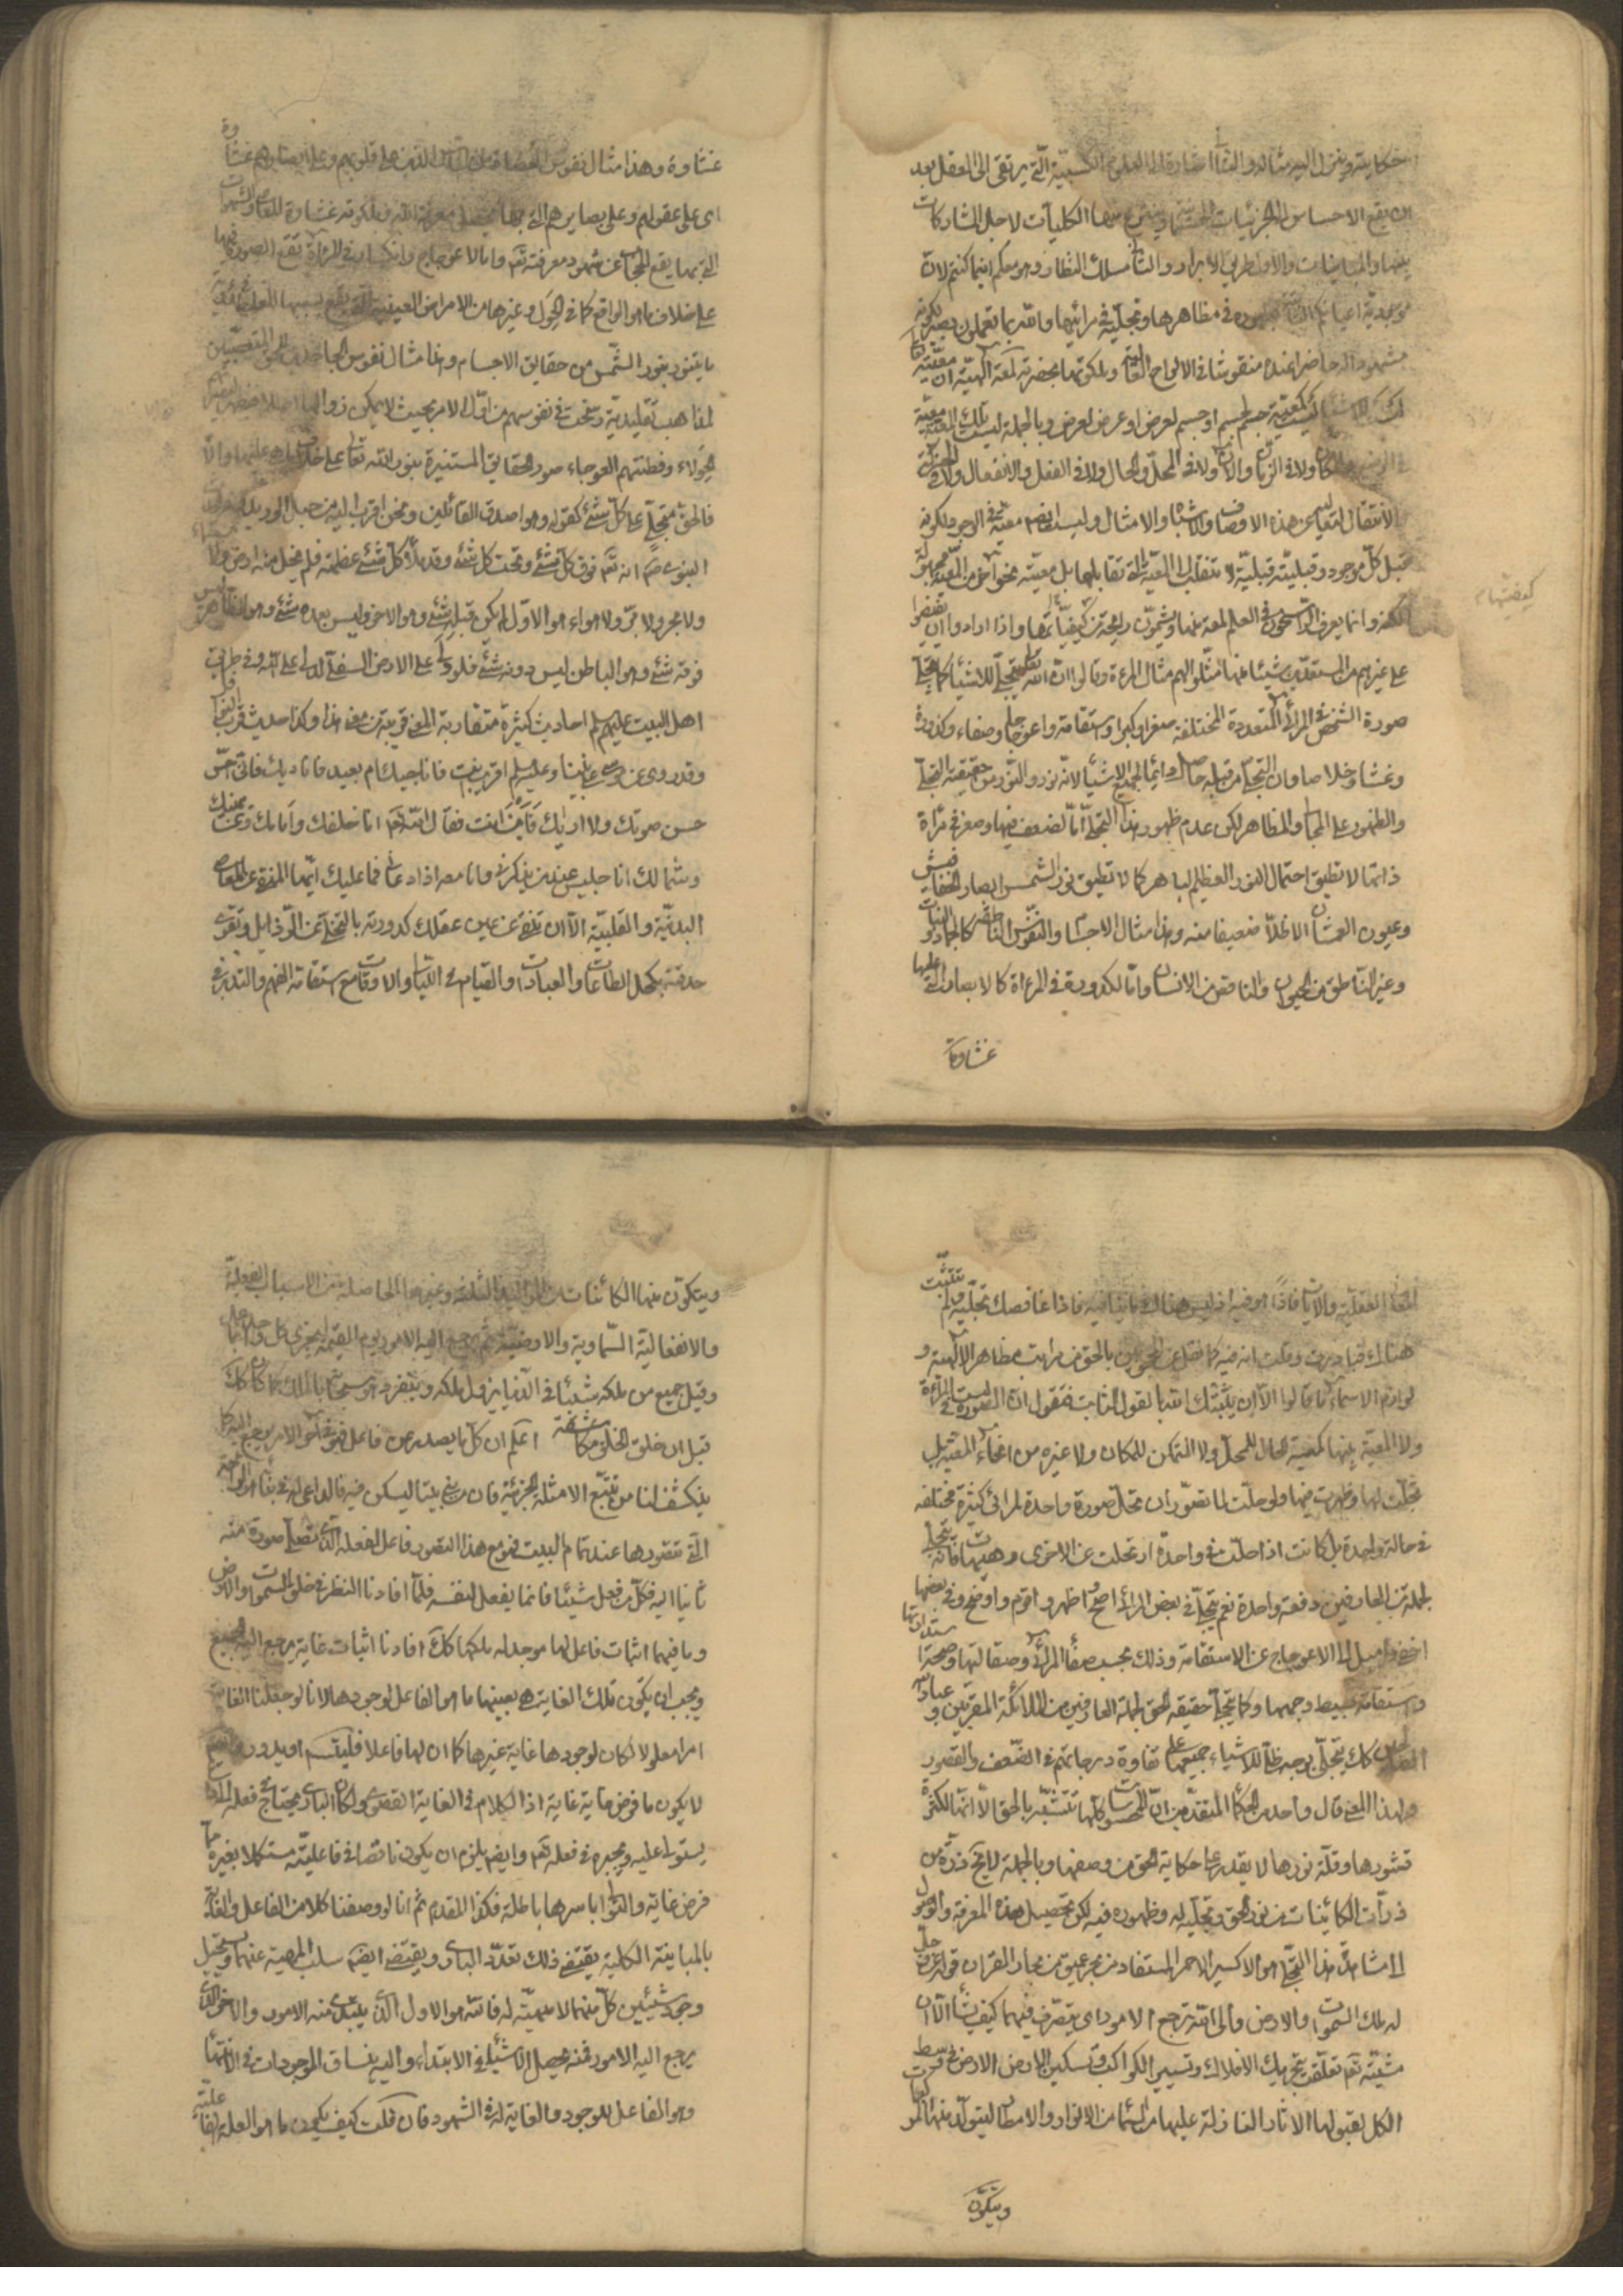 حكايته وينزل اليه مثاله والثانى اشارة الى العلوم الكسبيّة الّتى يرتقى الى العقل بعد
ان يقع الاحساس بالجزئيات فينتزع منها الكليات لاجل المشاركات
بينها والمباينات والاول طريق الابرار والثانى مسلك النظار وهو معكم اينما كنتم لان
موجدية اعيانكم ظهوره فى مظاهرها وتجلّيه فى مرائيها والله بما تعملون بصير لكونه
مشهودا له حاضرا عنده منقوشا فى الالواح ولملكوتها بحضرته لمعة الهيّة ان معيّته تعالى
لك كمعيّة جسم لجسم او جسم لعرض او عرض لعرض وبالجملة ليست تلك المعيّة معيّة
فى الوضع والمكان ولا فى الزمان والآن ولا فى المحلّ والحال ولا فى الفعل والانفعال ولا فى الحركة
والانتقال لتعاليه عن هذه الاوصاف والاشباه والامثال وليست ايضا معيّة فى الوجود لكونه
قبل كلّ موجود وقبليّته قبليّة لا تنقلب الى المعيّة الّتى تقابلها بل معيّته نحو آخر من المعيّة مجهولة
الكنه وانما يعرف الراسخون فى العلم لمعة منها ويشمّون رايحة من كيفيّاتها واذا ارادوا ان يفيضوا
كيفيتها م
على غيرهم من المستعدّين شيئا منها مثّلوا لهم مثال المرءاة وقالوا ان الله تعالى يتجلّى للاشياء كما يتجلّى
صورة الشخص فى المرائى المتعددة المختلفة صغرا وكبرا واستقامة واعوجاجا وصفاء وكدورة
وغشا وخلاصا وان التجلّى من قبله حاصل دائما لجميع الاشياء لانّه نور والنور من حقيقته التجلّى
والظهور على المجالى والمظاهر لكن عدم ظهور هذا التجلّى امّا لضعف فيها وصغر فى مرآة
ذاتها لا تطيق احتمال النور العظيم الباهر كما لا تطيق نور الشمس ابصار الخفافيش
وعيون العمشان الا ظلا ضعيفا منه وهذا مثال الاجسام والنفوس الناقصة كالجماد والنبات
وغير الناطق من الحيوان والناقص من الانسان وامّا لكدورة فى المرءاة كالابصار الّتى عليها
غشاوة
غشاوة وهذا مثال نفوس العصاة من الناس الذين على قلوبهم وعلى ابصارهم غشاوة
اى على عقولهم وعلى بصايرهم الّتى بها يحصل معرفة الله وملكوته غشاوة المعاصى والشهوات
الّتى بها يقع الحجاب عن شهود معرفته تعالى وامّا لاعوجاج وانكسار فى المرآة تقع الصورة فيها
على خلاف ما هو الواقع كما فى الحول وغيرها من الامراض العينية الّتى يقع بسببها الغلط فى رؤية
ما يتنور بنور الشمس من حقايق الاجسام وهذا مثال نفوس الجاحدين للحق المتعصّبين
لمذاهب تقليديّة رسخت فى نفوسهم من اوّل الامر بحيث لا يمكن زوالها
الحولاء وفطنتهم العوجاء صور الحقايق المستنيرة بنور الله تعالى على خلاف ما هى عليها والّا
فالحق متجلّ على كلّ شئ كقوله وهو اصدق القائلين ونحن اقرب اليه من حبل الوريد
النبوى ص انه تعالى فوق كلّ شئ وتحت كل شئ وقد ملأ كلّ شئ عظمته فلم يخل منه ارض ولا سماء
ولا بحر ولا برّ ولا هواء هو الاوّل لم يكن قبله شئ وهو الآخر وليس بعده شئ وهو الظاهر ليس
فوقه شئ وهو الباطن ليس دونه شئ فلو دلّى على الارض السفلى لدلى على الله وفى طريق
اهل البيت عليهم السلم احاديث كثيرة متقاربة المعنى قريبة من معنى هذا وكذا حديث قرب النوافل
وقد روى عن موسى على نبيّنا وعليه السلم اقريب انت فاناجيك ام بعيد فاناديك فانّى احسّ
حسن صوتك ولا اراك فاين انت فقال الله تعالى انا خلفك وامامك وعن يمينك
وشمالك انا جليس عند من يذكرنى وانا معه اذا دعانى فما عليك ايّها المنزّه عن المعاصى
البدنيّة والقلبيّة الّا ان تنقى عن عين عقلك كدورته بالتخلّى عن الرّذايل وتقوى
حدقته بكحل الطاعات والعبادات والقيام فى الليالى والاوقات مع استقامة الفهم والتدبر فى
العقلية والآيات فاذًا هو فيه اذ ليس هناك ما ينافيه فاذا غافصك تجلّيه ولم تتثبّت
هناك فبادرت وقلت انه فيه كما نقل عن المحجوبين بالحق من مراتب مظاهر الالهية و
لوازم الاسماء ما قالوا الّا ان يثبّتك الله بالقول الثابت فتقول ان الصورة ليست فى المرآة
ولا المعية بينها كمعية الحال للمحلّ ولا المتمكن للمكان ولا غيره من انحاء المعية بل
تجلّت لها وظهرت فيها ولو حلّت لما تصوّر ان تحلّ صورة واحدة لمرائى كثيرة مختلفة
فى حالة واحدة بل كانت اذا حلّت فى واحدة ارتحلت عن الاخرى وهيهات فانه يتجلّى
لجملة من العارفين دفعة واحدة نعم يتجلّى فى بعض المرائى اصحّ واظهر واقوم واوضح وفى بعضها
اخفى واميل الى الاعوجاج عن الاستقامة وذلك بحسب صفاء المرائى وصقالتها وصحة استدارتها
واستقامة بسيط وجهها وكما يتجلّى حقيقة الحق لجملة العارفين من الملائكة المقربّين وعباد الله
الصالحين كك يتجلّى بوجه ظلّه للاشياء جميعها على تفاوة درجاتهم فى الضّعف والقصور
ولهذا المعنى قال واحد من الحكماء المتقدّمين انّ المحسوسات كلّها تتشبّه بالحق الّا انّها لكثرة
قشورها وقلّة نورها لا يقدر على حكاية الحق من وصفها وبالجملة لا يخ ذرّة من
ذرّات الكائنات من نور الحق وتجلّيه له وظهوره فيه لكن تحصيل هذه المعرفة والوصول
الى مشاهدة هذا التجلّى هو الاكسير الاحمر المستفاد من بحر عميق من بحار القرآن قوله عزّ وجلّ
له ملك السموات والارض والى الله ترجع الامور اى يتصرّف فيهما كيف يشاء الّا ان
مشيّته تعالى تعلّقت بتحريك الافلاك وتسيير الكواكب وتسكين الارض فى وسط
الكل لقبولها الاثار النازلة عليها من السّماء من الانوار والامطار ليتولّد منها المركبات
ويتكوّن
ويتكوّن منها الكائنات من المواليد الثلثة وغيرها الحاصلة من الاسباب الفعلية
والانفعالية السّماوية والارضيّة ثم يرجع اليه الامور يوم القيمة ليجزى كل واحد على
وقيل جميع من ملكه شيئا فى الدّنيا يزول ملكه وينفرد هو سبحانه بالملك كما كان كك
قبل ان خلق الخلق مكاشفة اعلم ان كلّ ما يصدر عن فاعل فهو فى آخر الامر يرجع اليه كما
ينكشف لنا من تتبّع الامثلة الجزئية فان من بنى بيتا ليسكن فيه فالداعى له فى بنائه هو الراحة
الّتى تتصورها عند تمام البيت فهو مع هذا التصور فاعل لفعله الّذى تحصل صورة منه
ثانيا اليه فكلّ من فعل شيئا فانما يفعل لنفسه فلمّا افادنا النظر فى خلق السموات والارض
وما فيهما اثبات فاعل لها موجد له ملكها كك افادنا اثبات غاية يرجع اليها الجميع
ويجب ان يكون تلك الغاية هى بعينها ما هو الفاعل لوجودها لانا لو جعلنا الغاية
امرا معلولا لكان لوجودها غاية غيرها كما ان لها فاعلا فليتسلسل او يدور
لا يكون ما فرض غاية غاية اذ الكلام فى الغاية القصوى ولكان البارى محتاج فى فعله الى ما
يستولى عليه ويجبره فى فعله تعالى وايضا يلزم ان يكون ناقصا فى فاعليّته مستكملا بغيره مما
فرض غايته والتوالى باسرها باطلة فكذا المقدم ثم انا لو وصفنا كلا من الفاعل والغاية
بالمباينة الكلية يقتضى ذلك تعدّد البارى ويقتضى ايضا سلب المهية عنهما ويستحيل
وجود شيئين كلّ منهما لا مهيّة له فالله هو الاول الّذى يبتدى منه الامور والآخر الّذى
يرجع اليه الامور فمنه يحصل الاشياء فى الابتداء واليه ينساق الموجودات فى الانتهاء
وهو الفاعل للوجود والغاية له فى الشهود فان قلت كيف يكون ما هو العلة الفاعلية علّة